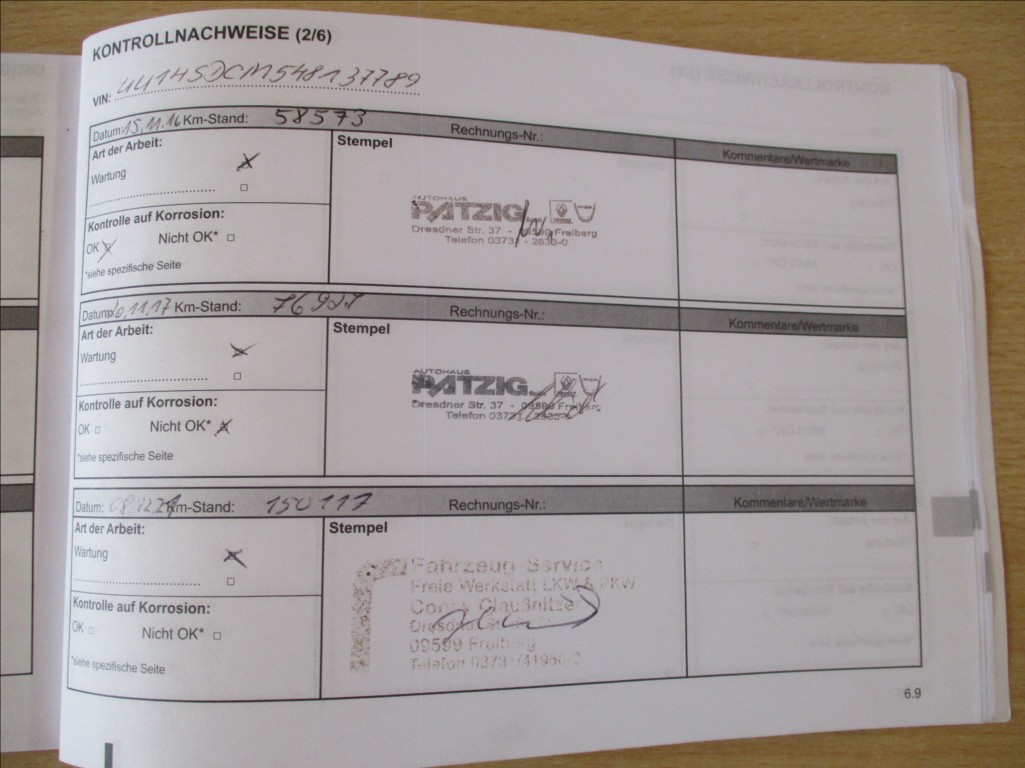 KONTROLLNACHWEISE (2/6)
VIN: UU14SDCM548137789
Datum: 15.11.16 Km-Stand: 58573 Rechnungs-Nr.:
Kommentare/Wertmarke
Art der Arbeit:
Stempel
Wartung
Kontrolle auf Korrosion:
OK Nicht OK*
*siehe spezifische Seite
AUTOHAUS
PATZIG
Dresdner Str. 37 - 09599 Freiberg
Telefon 03731 - 2633-0
Datum: 11.17 Km-Stand: Rechnungs-Nr.:
Kommentare/Wertmarke
Art der Arbeit:
Stempel
Wartung
Kontrolle auf Korrosion:
OK Nicht OK*
*siehe spezifische Seite
AUTOHAUS
PATZIG
Dresdner Str. 37 - 09599 Freiberg
Telefon 03731 - 2633-0
Datum: Km-Stand: 150117 Rechnungs-Nr.:
Kommentare/Wertmarke
Art der Arbeit:
Stempel
Wartung
Kontrolle auf Korrosion:
OK Nicht OK*
*siehe spezifische Seite
Fahrzeug-Service
Freie Werkstatt LKW & PKW
Conny Claußnitzer
09599 Freiberg
Telefon
6.9